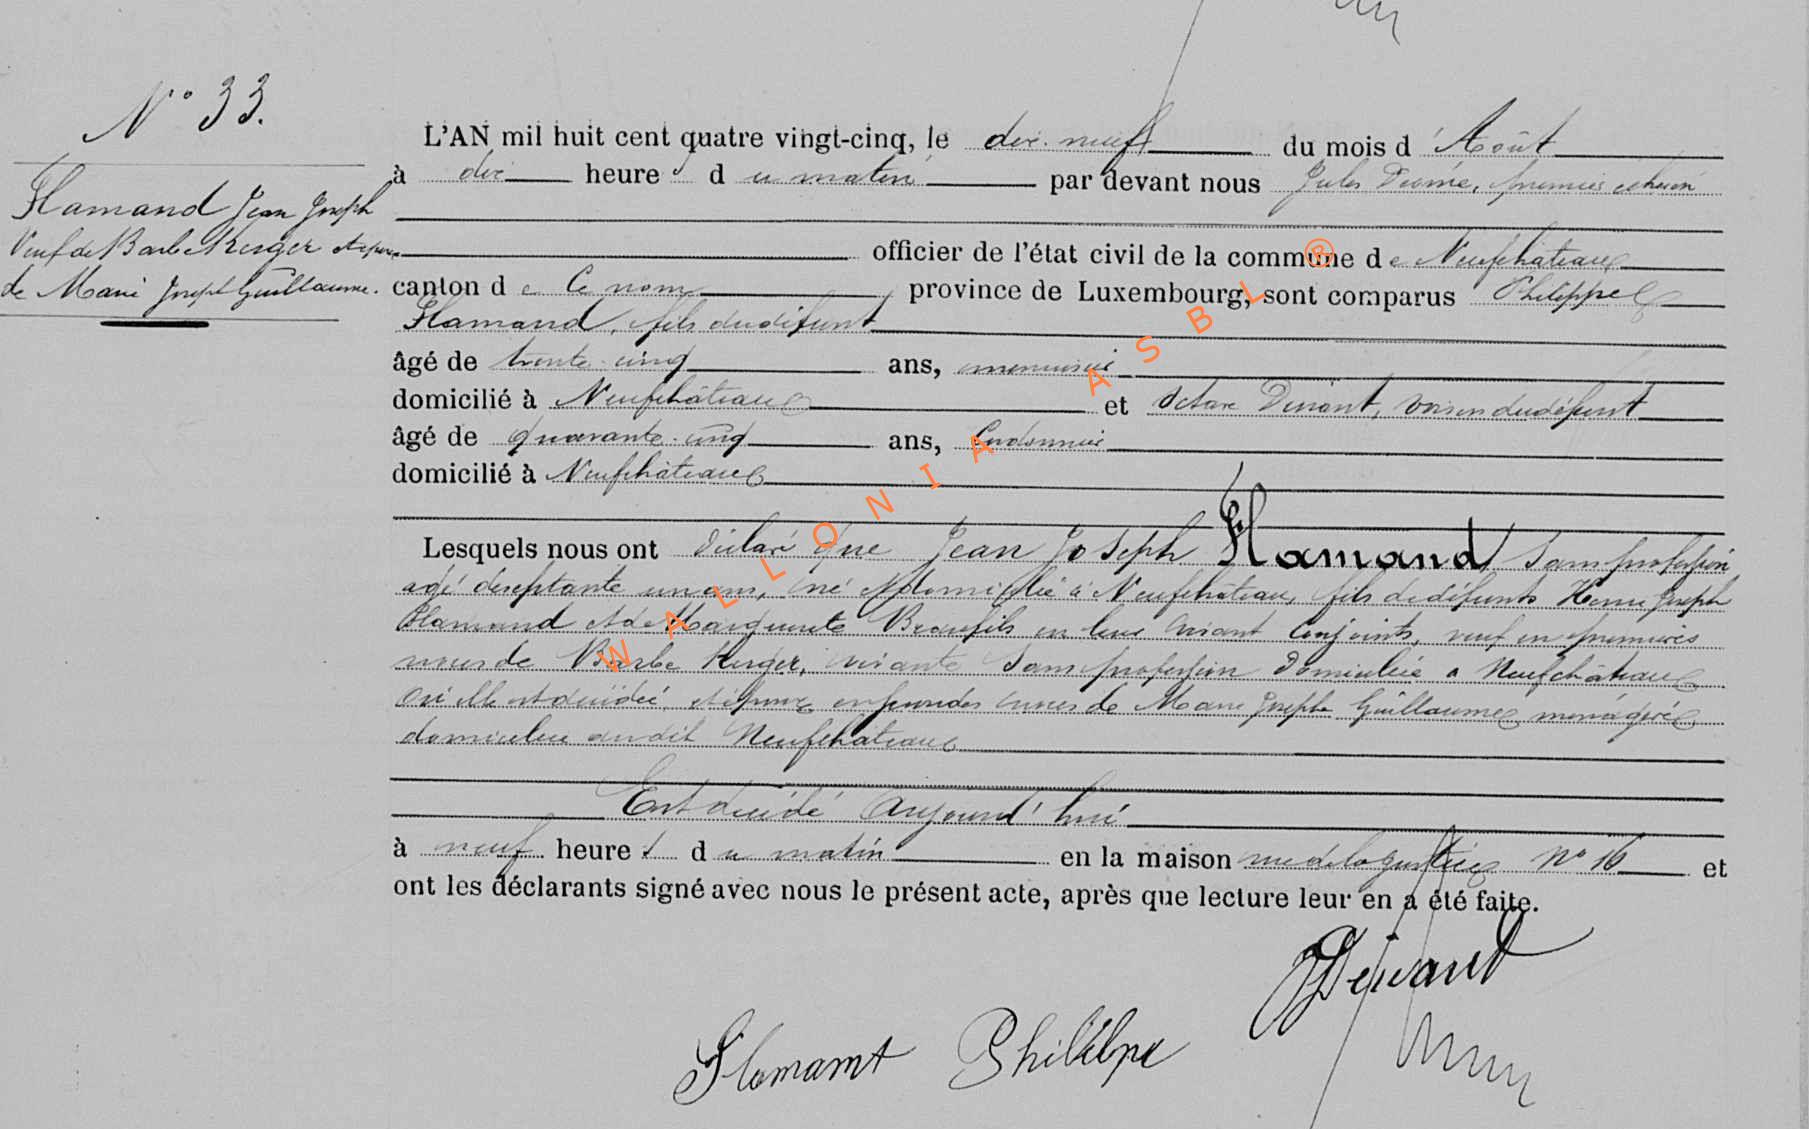 N° 33.
Flamand Jean Joseph
Veuf de Barbe Kerger et époux
de Marie Joseph Guillaume.
L'AN mil huit cent quatre vingt-cinq, le dix-neuf du mois d'Août
à dix heures du matin par devant nous Jules premier échevin
officier de l'état civil de la commune de Neufchâteau
canton de Ce nom province de Luxembourg, sont comparus Philippe
Flamand, fils du défunt
âgé de trente-cinq ans, menuisier
domicilié à Neufchâteau et Octave Dinant, voisin du défunt
âgé de quarante-cinq ans, Cordonnier
domicilié à Neufchâteau
Lesquels nous ont déclaré que Jean Joseph Flamand Sans profession
agé de septante un ans, né et domicilié à Neufchâteau, fils de défunts Henri Joseph
Flamand et de Marguerite Beaufils en leur vivant Conjoints, veuf en premières
noces de Barbe Kerger, vivante Sans profession domiciliée a Neufchâteau
où elle est décédée, et époux en secondes noces de Marie Joseph Guillaume ménagère
domiciliée audit Neufchateau
Est décédé aujourd'hui
à neuf heures du matin en la maison rue de la Justice N° 16 et
ont les déclarants signé avec nous le présent acte, après que lecture leur en a été faite.
Flamant Philippe
WALLONIA ASBL ®